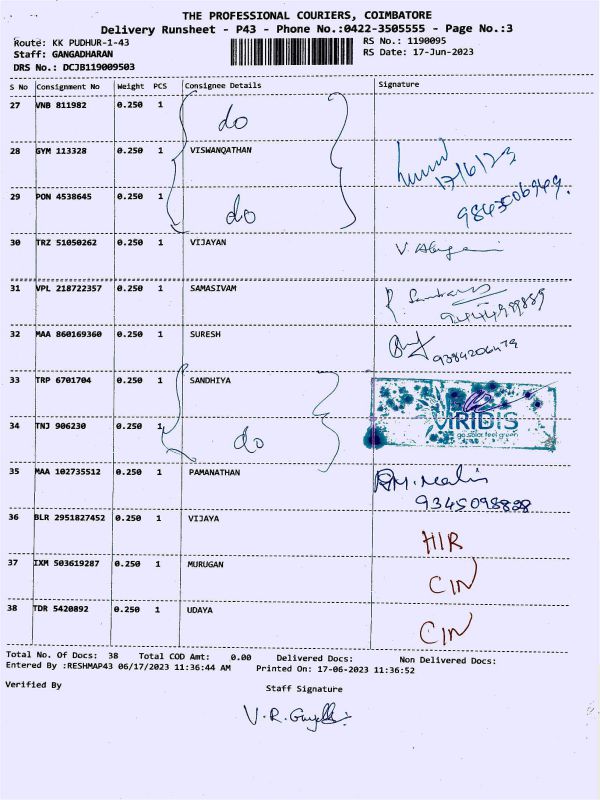 THE PROFESSIONAL COURIERS, COIMBATORE
Delivery Runsheet - P43 - Phone No.:0422-3505555 - Page No.:3
Route: KK PUDHUR-1-43 RS No.: 1190095
Staff: GANGADHARAN RS Date: 17-Jun-2023
DRS No.: DCJB119009503
S No Consignment No Weight PCS Consignee Details Signature
27 VNB 811982 0.250 1 do
28 GYM 113328 0.250 1 VISWANQATHAN 17/6/23
29 PON 4538645 0.250 1 do 9843006949.
30 TRZ 51050262 0.250 1 VIJAYAN
31 VPL 218722357 0.250 1 SAMASIVAM
32 MAA 860169360 0.250 1 SURESH 9384206479
33 TRP 6701704 0.250 1 SANDHIYA
34 TNJ 906230 0.250 1 do VIRIDIS
go solar.feel green
35 MAA 102735512 0.250 1 PAMANATHAN
9345098888
36 BLR 2951827452 0.250 1 VIJAYA HIR
37 IXM 503619287 0.250 1 MURUGAN CIN
38 TDR 5420892 0.250 1 UDAYA CIN
Total No. Of Docs: 38 Total COD Amt: 0.00 Delivered Docs: Non Delivered Docs:
Entered By :RESHMAP43 06/17/2023 11:36:44 AM Printed On: 17-06-2023 11:36:52
Verified By Staff Signature